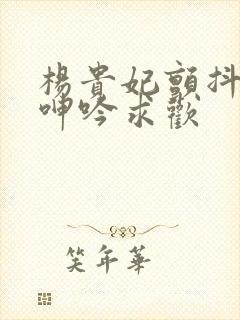 楊貴妃顫抖
呻吟求歡
笑年華